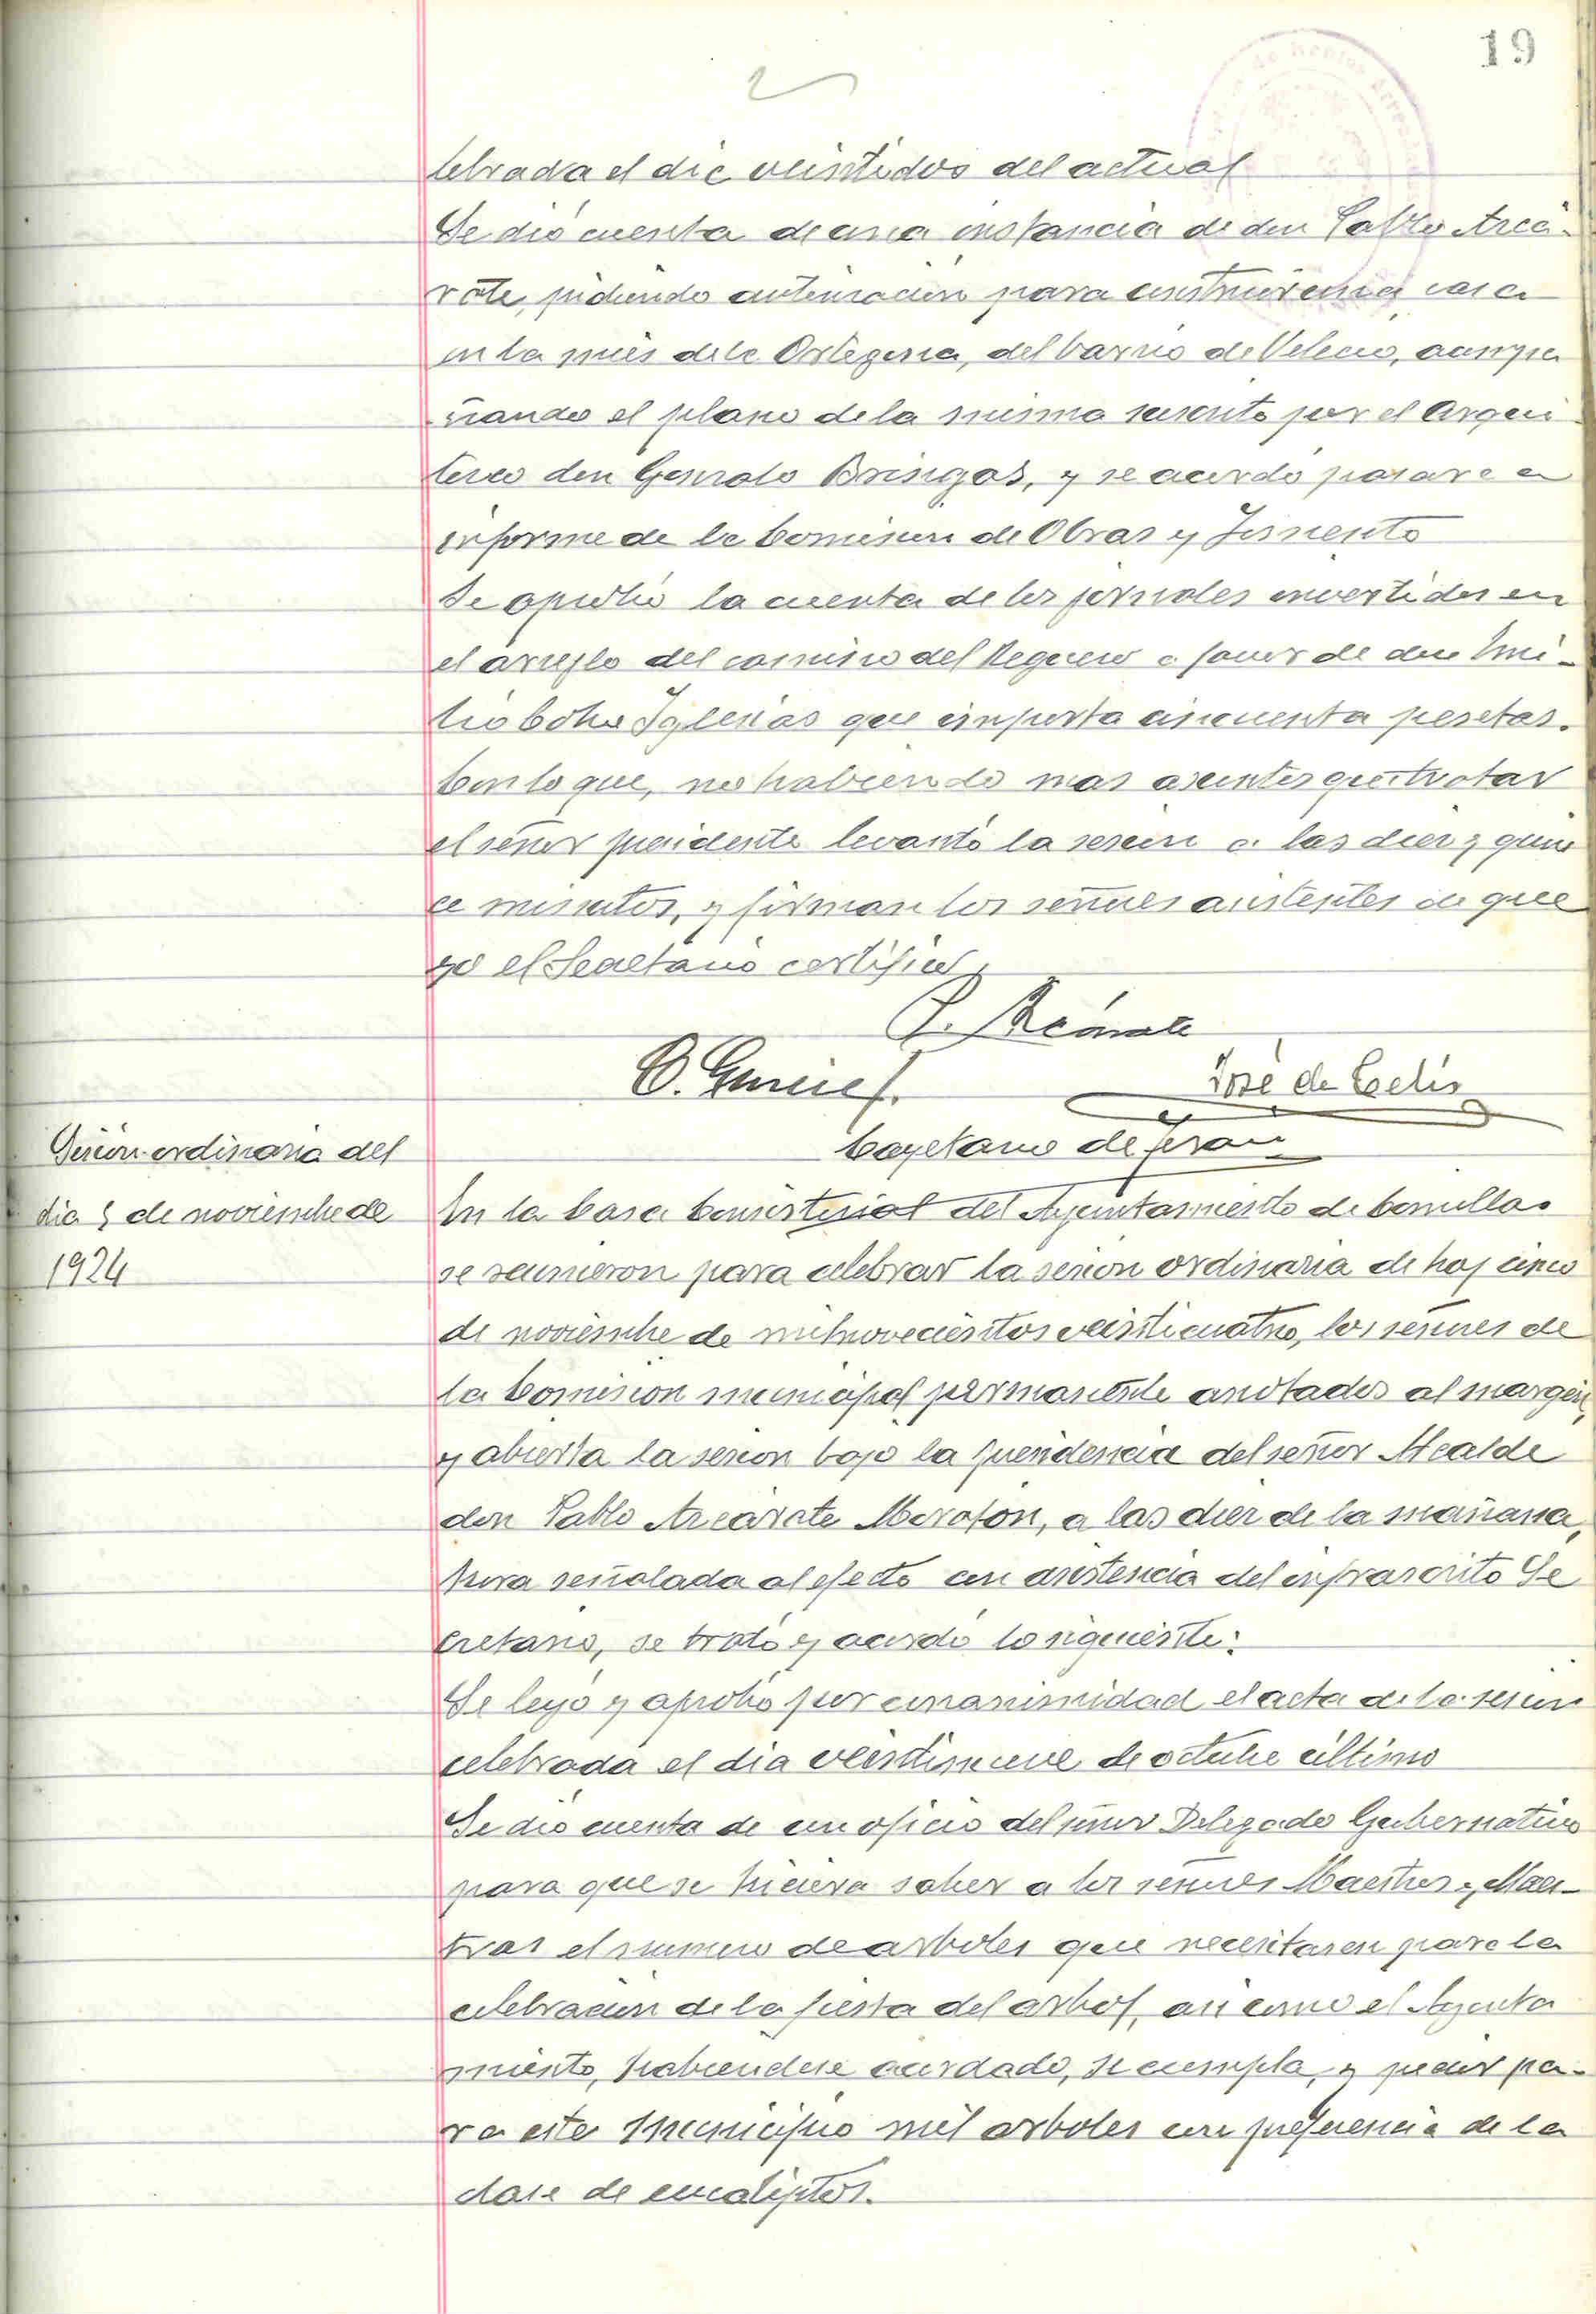 19
lebrada el dia veintidos del actual
Se dió cuenta de una instancia de don Pablo Arcá-
rate, pidiendo autorización para construir una casa
en la mies de la Ortegona, del barrio de Velecio, acompa
ñando el plano de la misma suscrito por el Arqui
tecto don Gonzalo Bringas, y se acordó pasara a
informe de la Comision de Obras y Fomento
Se aprobó la cuenta de los jornales invertidos en
el arreglo del camino del Reguero a favor de don Emi-
lio Iglesias que importa cincuenta pesetas.
Con lo que, no habiendo mas asuntos que tratar
el señor presidente levantó la sesion a las diez y quin
ce minutos, y firman los señores asistentes de que
yo el Secretario certifico,
P. Arcárate
José de Celis
Cayetano de
Sesión ordinaria del
dia 5 de noviembre de
1924
En la Casa Consistorial del Ayuntamiento de Comillas
se reunieron para celebrar la sesion ordinaria de hoy cinco
de noviembre de mil novecientos veinticuatro, los señores de
la Comision municipal permanente anotados al margen,
y abierta la sesion bajo la presidencia del señor Alcalde
don Pablo Arcárate Morafon, a las diez de la mañana,
hora señalada al efecto con asistencia del infrascrito Se
cretario, se trató y acordó lo siguiente:
Se leyó y aprobó por unanimidad el acta de la sesion
celebrada el dia veintinueve de octubre último
Se dió cuenta de un oficio del señor Delegado Gubernativo
para que se hiciera saber a los señores Maestros y Maes-
tras el numero de arboles que necesitasen para la
celebración de la fiesta del arbol, asi como el Ayunta
miento, habiendose acordado, se cumpla, y pedir pa-
ra este Municipio mil arboles con preferencia de la
clase de eucaliptos.